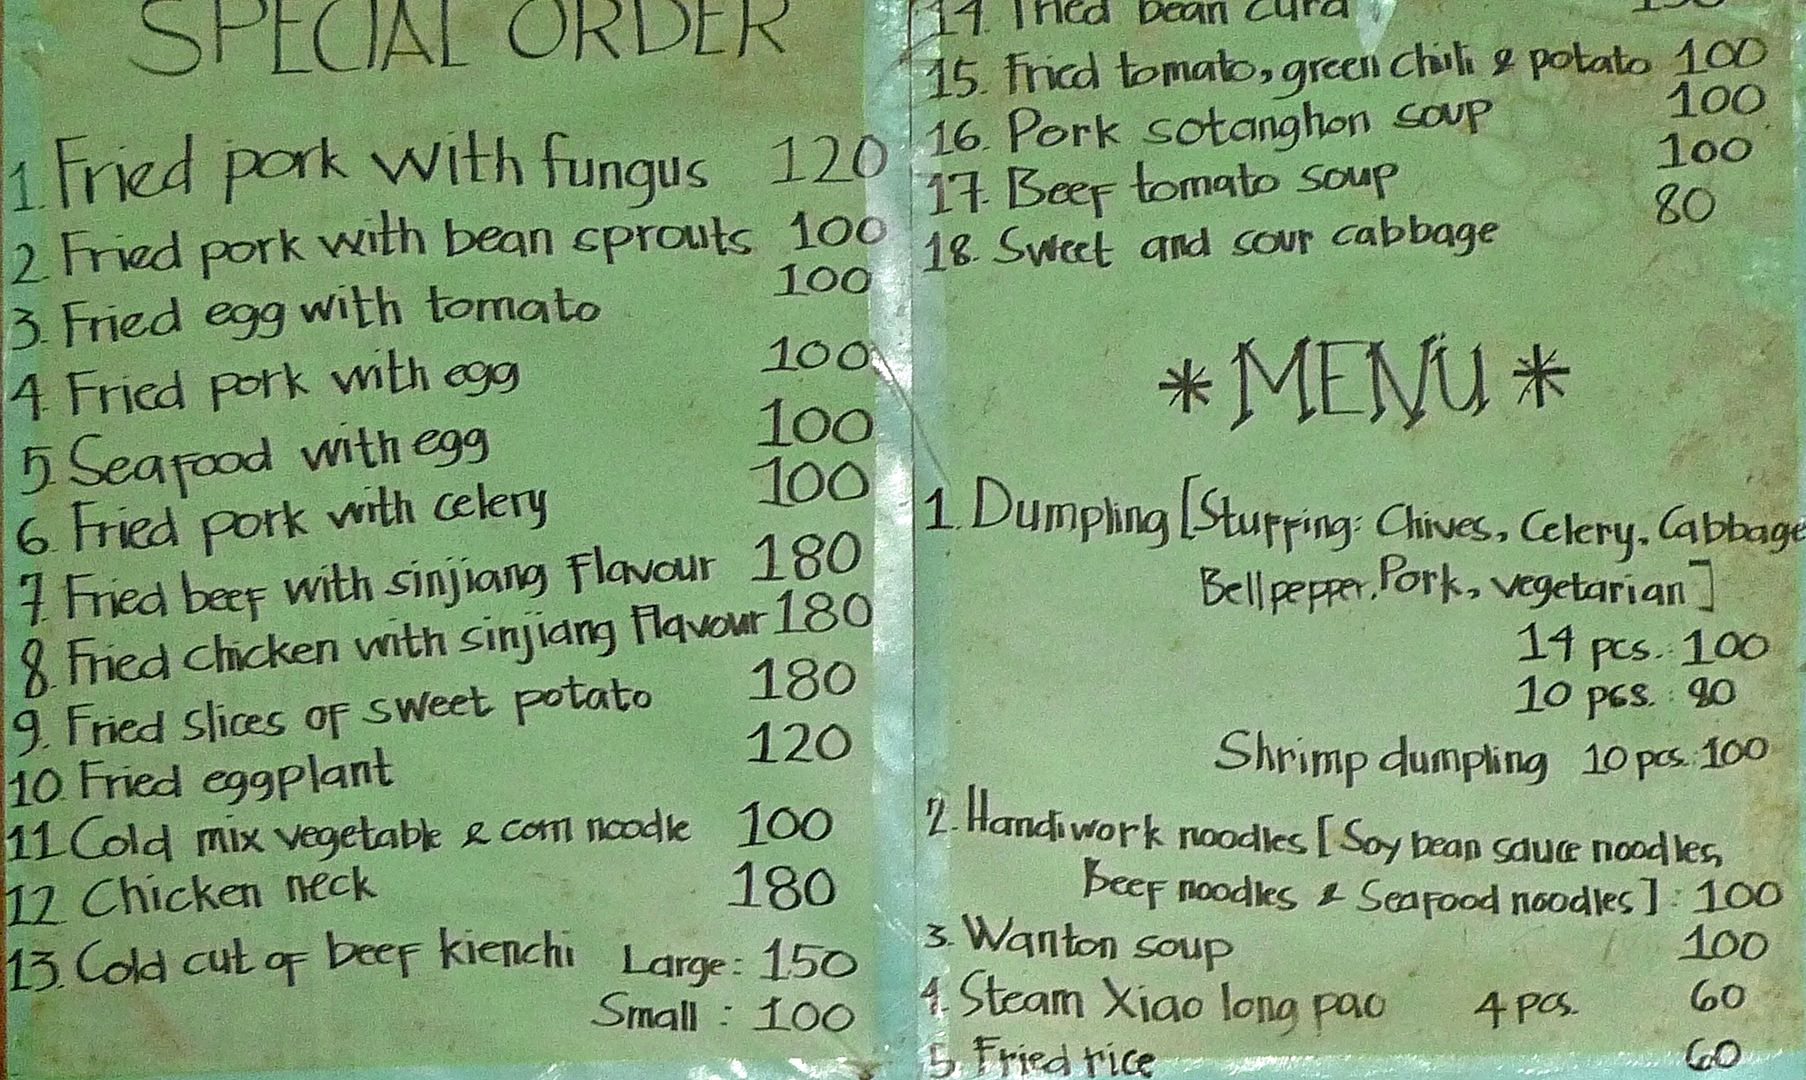 SPECIAL ORDER
1. Fried pork with fungus 120
2. Fried pork with bean sprouts 100
3. Fried egg with tomato 100
4. Fried pork with egg 100
5. Seafood with egg 100
6. Fried pork with celery 100
7. Fried beef with sinjiang flavour 180
8. Fried chicken with sinjiang flavour 180
9. Fried slices of sweet potato 180
10. Fried eggplant 120
11. Cold mix vegetable & corn noodle 100
12. Chicken neck 180
13. Cold cut of beef kienchi Large: 150
Small: 100
14. Fried bean curd
15. Fried tomato, green chili & potato 100
16. Pork sotanghon soup 100
17. Beef tomato soup 100
18. Sweet and sour cabbage 80
* MENU *
1. Dumpling [Stuffing: Chives, Celery, Cabbage
Bellpepper, Pork, vegetarian]
14 pcs.: 100
10 pcs.: 80
Shrimp dumpling 10 pcs.: 100
2. Handiwork noodles [Soy bean sauce noodles,
Beef noodles & Seafood noodles]: 100
3. Wanton soup 100
4. Steam Xiao long pao 4 pcs. 60
5. Fried rice 60